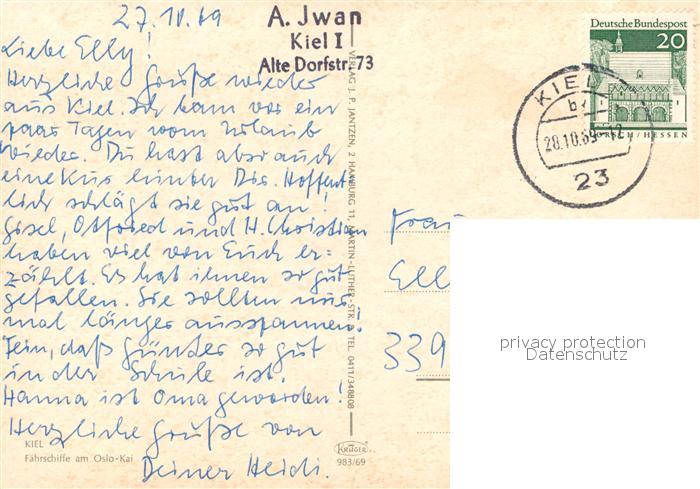 27.10.69
Liebe Elly!
Herzliche Grüße wieder
aus Kiel. Ich kam vor ein
paar Tagen vom Urlaub
wieder. Du hast aber auch
eine Kur hinter Dir. Hoffent
lich schlägt sie gut an!
Gisel, Ostfried und H. Christian
haben viel von Euch er=
zählt. Es hat ihnen so gut
gefallen. Sie sollten nur
mal länger ausspannen!
Fein, daß Günter so gut
in der Schule ist.
Hanna ist Oma geworden!
Herzliche Grüße von
Deiner Heidi.
KIEL
Fährschiffe am Oslo-Kai
A. Jwan
Kiel I
Alte Dorfstr. 73
VERLAG J. P. JANTZEN, 2 HAMBURG 11, MARTIN-LUTHER-STR. TEL. 0411/348808
KRÜGER
983/69
Deutsche Bundespost
20
LORSCH/HESSEN
KIEL
28.10.69-12
23
Frau
Ell
339
privacy protection
Datenschutz